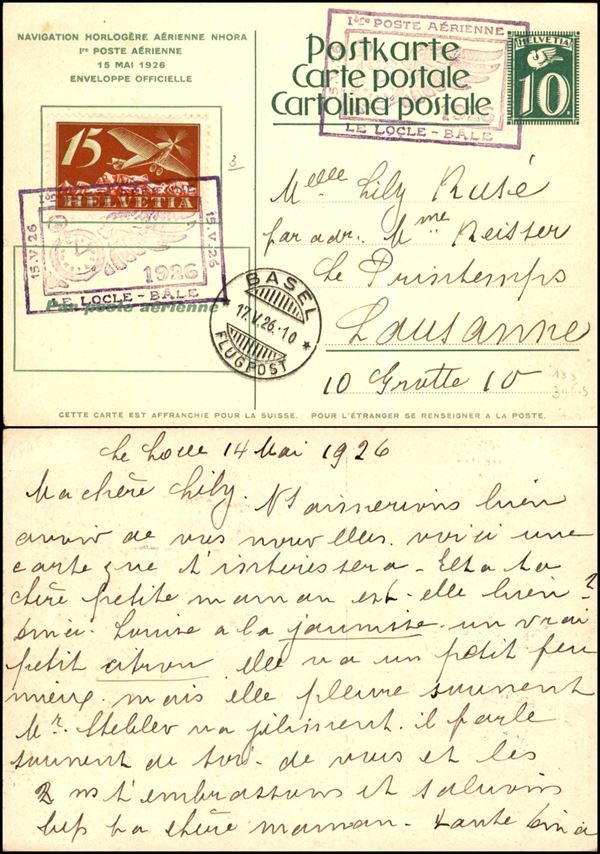 NAVIGATION HORLOGÈRE AÉRIENNE NHORA
Ire POSTE AÉRIENNE
15 MAI 1926
ENVELOPPE OFFICIELLE
Postkarte
Carte postale
Cartolina postale
HELVETIA
10
Ière POSTE AÉRIENNE
1926
LE LOCLE - BÂLE
15
HELVETIA
15.V.26
15.V.26
1926
LE LOCLE - BÂLE
Par poste aérienne
BASEL
17.V.26.-10
FLUGPOST
3
Melle Lily Rusé
par adr. Mme Reisser
Le Printemps
Lausanne
10 Grotte 10
CETTE CARTE EST AFFRANCHIE POUR LA SUISSE. POUR L'ÉTRANGER SE RENSEIGNER A LA POSTE.
Le Locle 14 Mai 1926
Ma chère Lily. Ns aimerions bien
avoir de vos nouvelles. voici une
carte que t'intéressera - Et ta
chère petite maman est-elle bien ?
Louise a la jaunisse. un vrai
petit citron elle va un petit peu
mieux. mais elle pleure souvent
Mr. va gentiment. il parle
souvent de toi. de vous et les
2 ns t'embrassons et saluons
ta chère maman. Tante